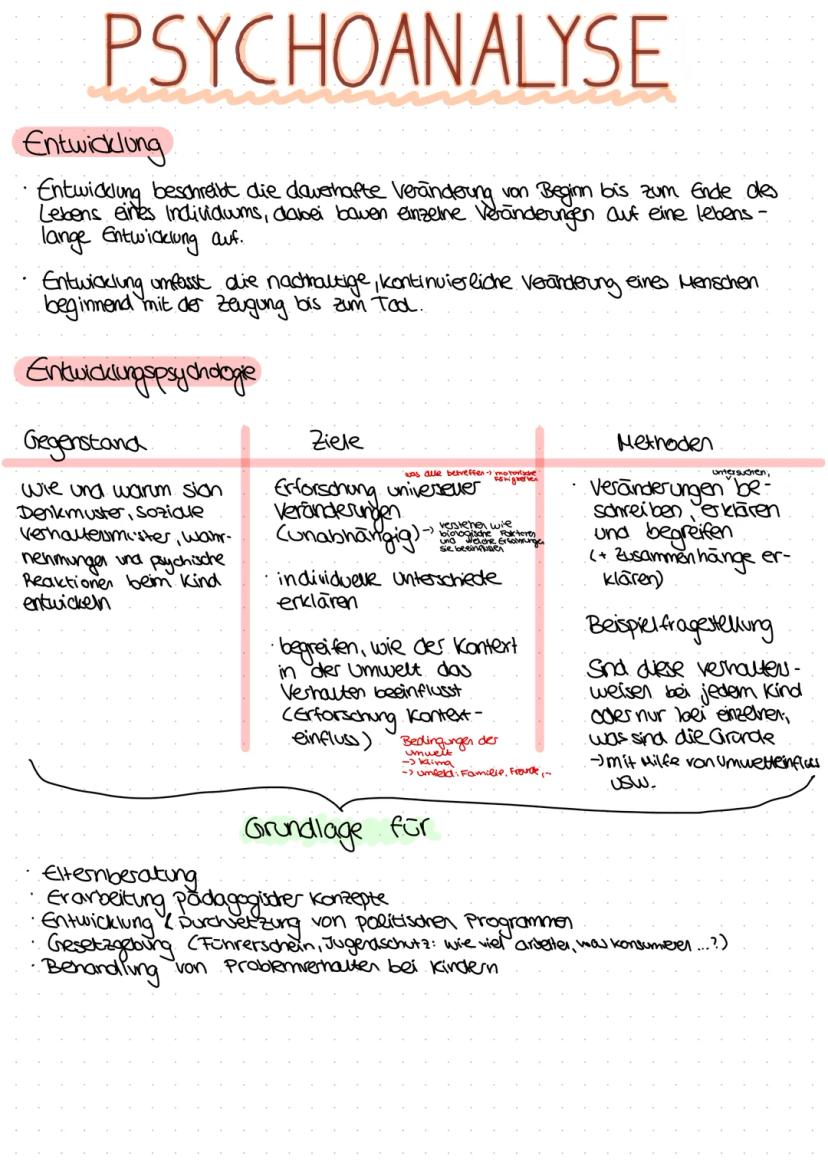 PSYCHOANALYSE
Entwicklung
· Entwicklung beschreibt die dauerhafte Veränderung von Beginn bis zum Ende des
Lebens eines Individiums, dabei bauen einzelne Veränderungen auf eine lebens-
lange Entwicklung auf.
· Entwicklung umfasst die nachhaltige, kontinuierliche Veränderung eines Menschen
beginnend mit der Zeugung bis zum Tod.
Entwicklungspsychologie
Gegenstand
Wie und warum sich
Denkmuster, Soziale
Verhaltensmuster, Wahr-
nehmungen und psychische
Reaktionen beim Kind
entwickeln
Ziele
was alle betreffen → motorische
Fähigkeiten
Erforschung universeller
Veränderungen
(unabhängig) → verstehen wie
biologische Faktoren
und welche Erfahrungen
sie beeinflussen
· individuelle Unterschiede
erklären
· begreifen, wie der Kontext
in der Umwelt das
Verhalten beeinflusst
(Erforschung Kontext-
einfluss)
Bedingungen der
Umwelt
→ Klima
→ Umfeld: Familie, Freunde,..
Methoden
untersuchen,
· Veränderungen be-
schreiben, erklären
und begreifen
(+ Zusammenhänge er-
klären)
Beispielfragestellung
Sind diese Verhalten-
weisen bei jedem Kind
oder nur bei einzelnen,
was sind die Gründe
→ mit Hilfe von Umwelteinfluss
usw.
Grundlage für
· Elternberatung
· Erarbeitung pädagogischer Konzepte
· Entwicklung & Durchsetzung von politischen Programmen
· Gesetzgebung (Führerschein, Jugendschutz: wie viel arbeiten, was konsumieren ...?)
· Behandlung von Problemverhalten bei Kindern